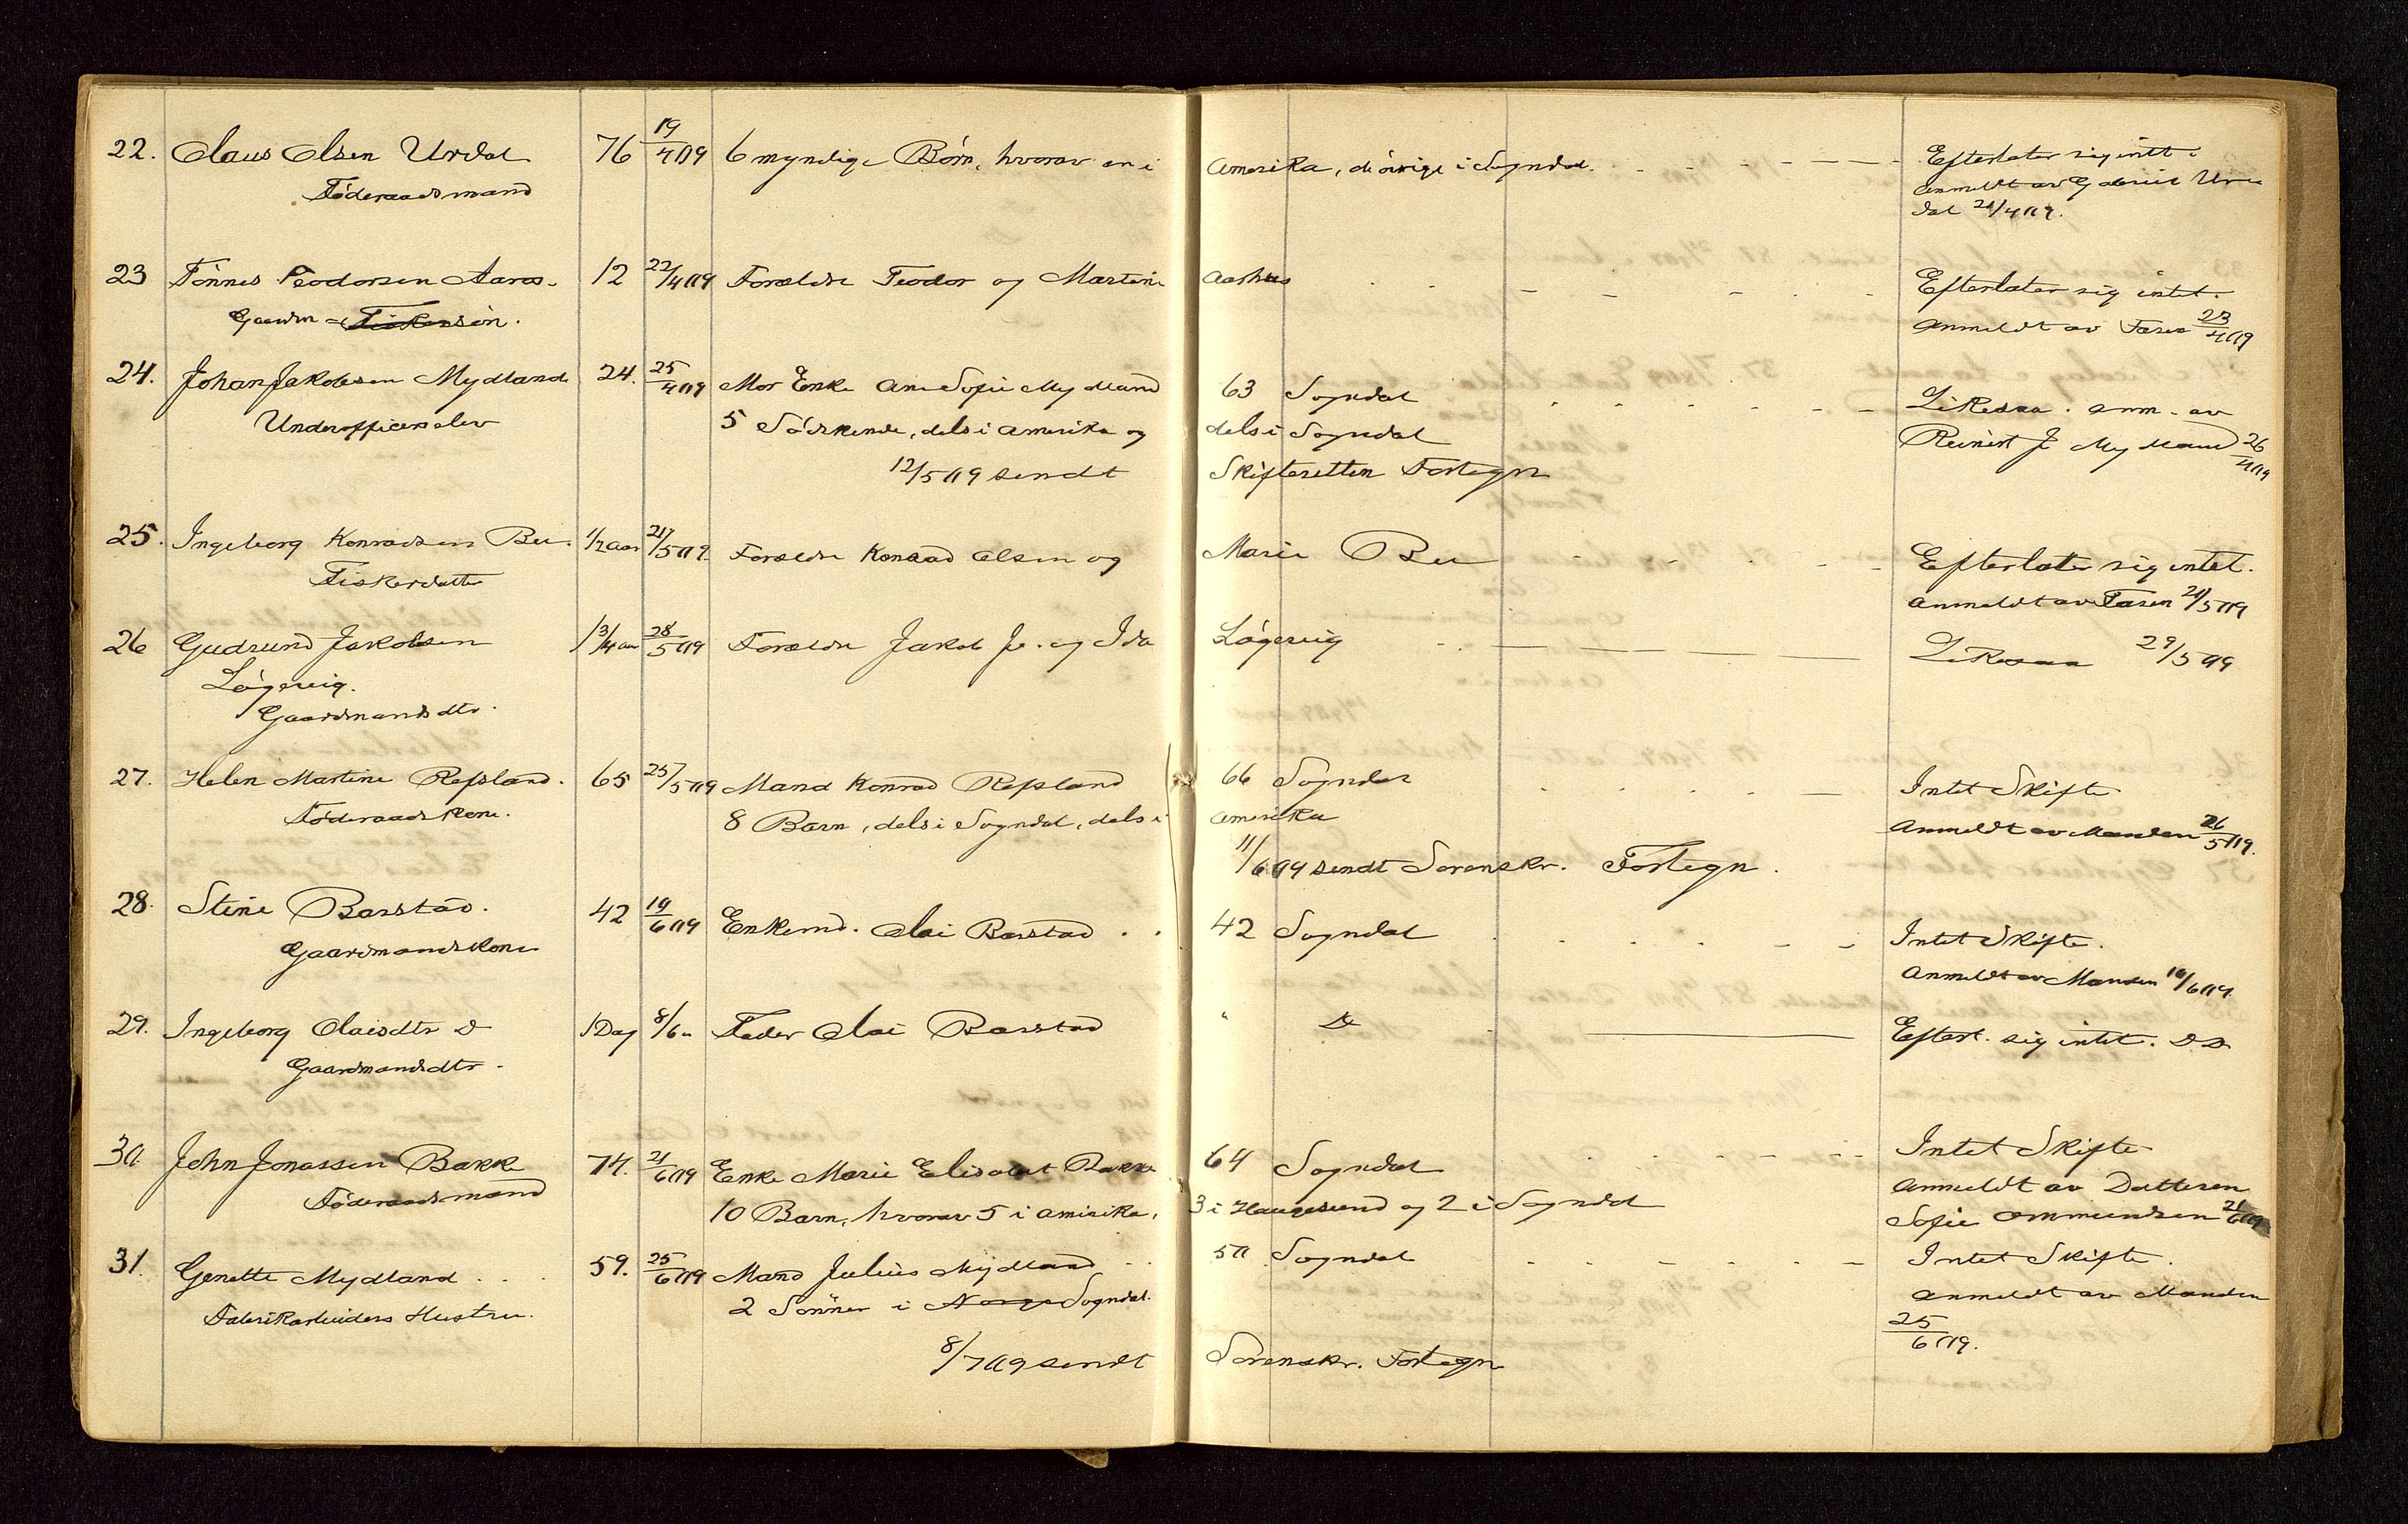 22. Claus Olsen Urdal 76 19/4 09 6 myndige Børn, hvorav en i Amerika, de øvrige i Sogndal. Efterlater sig intet.
Föderaadsmand anmeldt av Gabriel Ur-
dal 20/4 09.
23 Tönnes Teodorsen Aaros. 12 22/4 09 Forældre Teodor og Martine Aashus Efterlater sig intet.
Gaardm = Fiskersön. anmeldt av Faren 23/4 09
24. Johan Jakobsen Mydland 24. 25/4 09 Mor Enke Ane Sofie Mydland 63 Sogndal Likesaa. anm. av
Underofficerselev 5 Södskende, dels i Amerika og dels i Sogndal Reinert J Mydland 26/4 09
12/5 09 sendt Skifteretten Fortegn
25. Ingeborg Konradsen Bu. 1/2 Aar 21/5 09. Forældre Konrad Olsen og Marie Bu Efterlater sig intet.
Fiskerdatter anmeldt av Faren 21/5 09
26 Gudrund Jakobsen 1 3/4 aar 28/5 09 Forældre Jakob Js. og Ida Lögevig Likesaa 29/5 09
Lögevig.
Gaardmandsdtr.
27. Helen Martine Refsland. 65 25/5 09 Mand Konrad Refsland 66 Sogndal Intet Skifte
Föderaadskone. 8 Barn, dels i Sogndal, dels i Amerika Anmeldt av Manden 26/5 09.
11/6 09 sendt Sorenskr. Fortegn.
28. Stine Barstad. 42 19/6 09 Enkemd. Olai Barstad . . 42 Sogndal Intet Skifte.
Gaardmandskone Anmeldt av Manden 10/6 09.
29. Ingeborg Olaisdtr D 1 Dag 8/6 " Fader Olai Barstad " D Efterl. sig intet. D D
Gaardmandsdtr.
30 John Jonassen Bakke 74. 21/6 09 Enke Marie Elisabet Bakke 64 Sogndal Intet Skifte
Föderaadsmand 10 Barn, hvorav 5 i Amirika, 3 i Haugesund og 2 i Sogndal Anmeldt av Datteren
Sofie Ommundsen 21/6 09
31. Genette Mydland . . . 59. 25/6 09 Mand Julius Mydland . . 50 Sogndal Intet Skifte.
Fabrikarbeiders Hustru. 2 Sönner i Norge Sogndal. anmeldt av Manden
25/6 09.
8/7 09 sendt Sorenskr. Fortegn